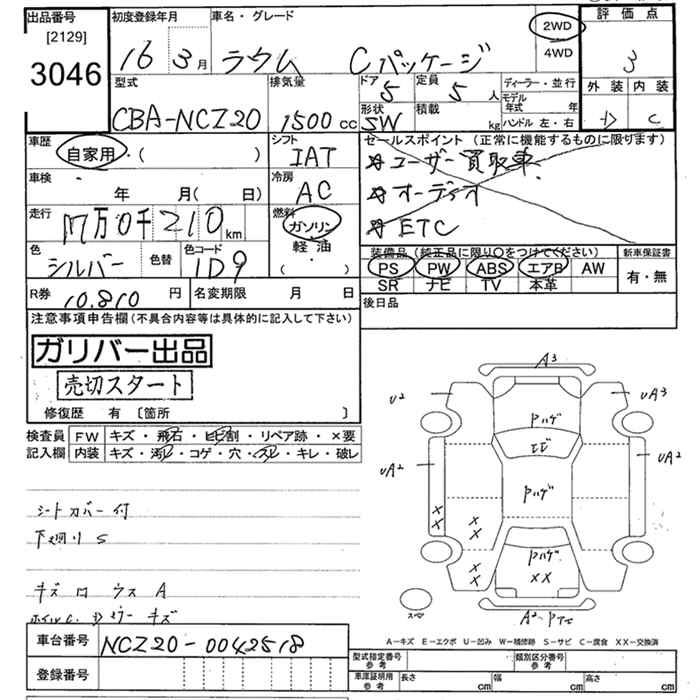 出品番号
[2129]
3046
初度登録年月
16 3月
車名・グレード
ラウム Cパッケージ
2WD
4WD
評価点
3
外装 内装
D C
型式
CBA-NCZ20
排気量
1500cc
ドア
5
定員
5人
ディーラー・並行
モデル年式 年
形状
SW
積載 kg
ハンドル 左・右
車歴
自家用・( )
シフト
IAT
セールスポイント(正常に機能するものに限ります)
ユーザー買取車
オーディオ
ETC
車検
年 月( 日)
冷房
AC
走行
17万0千210km
燃料
ガソリン
軽油
( ・ )
色
シルバー
色替
色コード
1D9
装備品(純正品に限り○をつけてください)
PS PW ABS エアB AW
SR ナビ TV 本革
新車保証書
有・無
R券
10.810円
名変期限 月 日
後日品
注意事項申告欄(不具合内容等は具体的に記入して下さい)
ガリバー出品
売切スタート
修復歴 有 [箇所 ]
検査員記入欄
FW キズ・飛石・ヒビ割・リペア跡・×要
内装 キズ・汚レ・コゲ・穴・スレ・キレ・破レ
シートカバー付
下廻りS
キズ ロ ウス A
A3
U2
UA3
UA2
UA2
Pハゲ
エビ
Pハゲ
Pハゲ
××
××
××
××
スペ
A2
A－キズ E－エクボ U－凹み W－補修跡 S－サビ C－腐食 XX－交換済
車台番号
NCZ20-0042518
登録番号
型式指定番号
参考
類別区分番号
参考
車庫証明用
参考
長さ cm
幅 cm
高さ cm